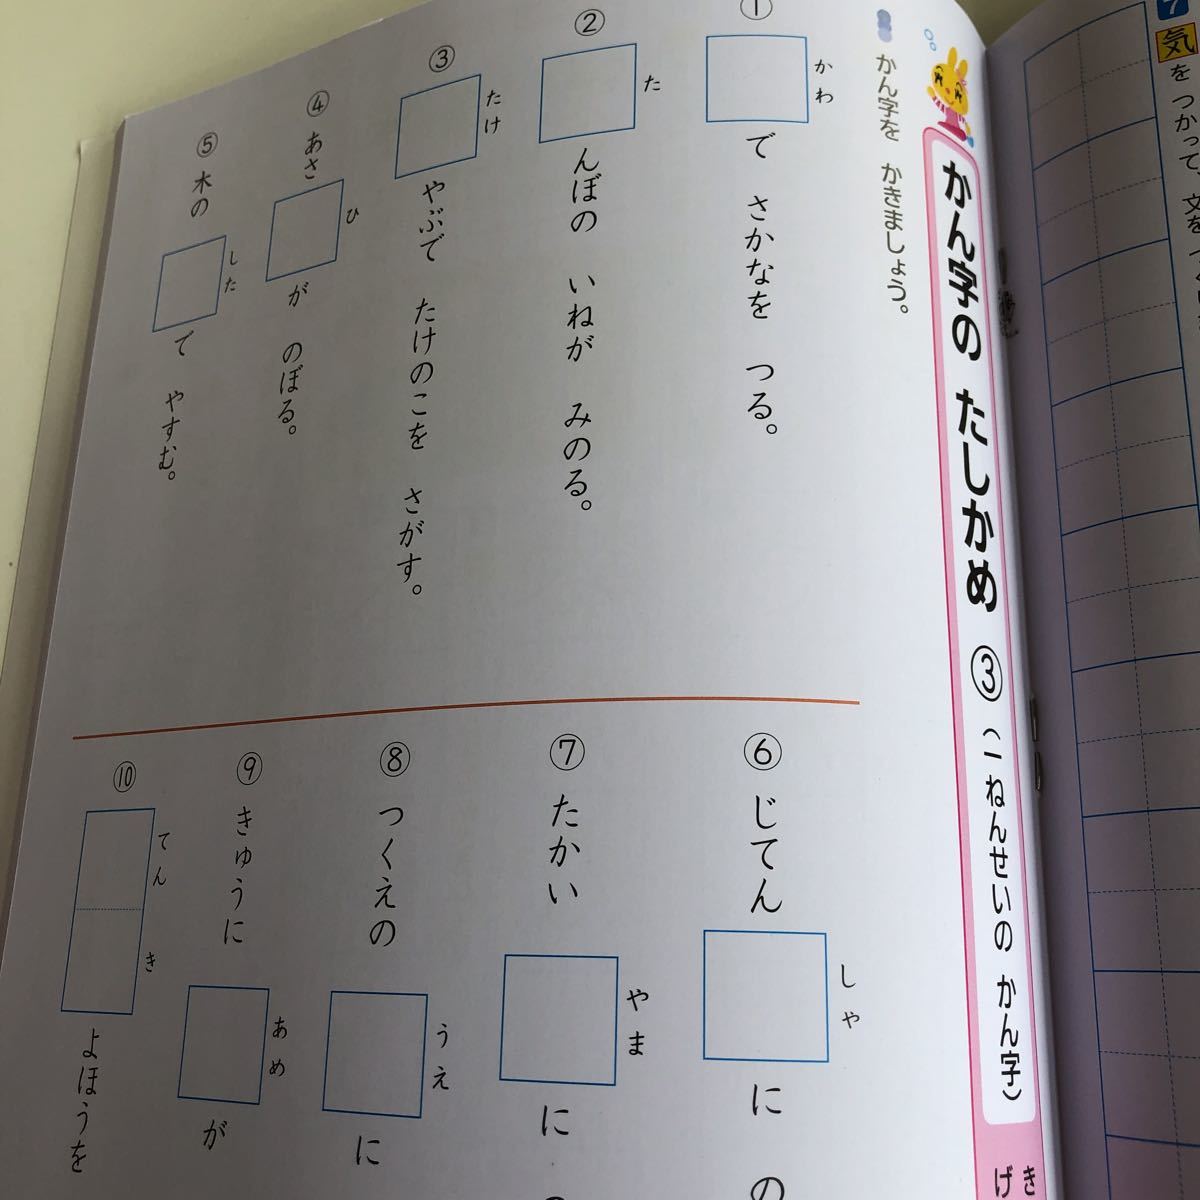 7 気を つかって、文を
かん字の たしかめ ③ (一ねんせいの かん字)
げき
かん字を かきましょう。
① かわ で さかなを つる。
② た んぼの いねが みのる。
③ たけ やぶで たけのこを さがす。
④ あさ ひ が のぼる。
⑤ 木の した で やすむ。
⑥ じてん しゃ に の
⑦ たかい やま に
⑧ つくえの うえ に
⑨ きゅうに あめ が
⑩ てん き よほうを